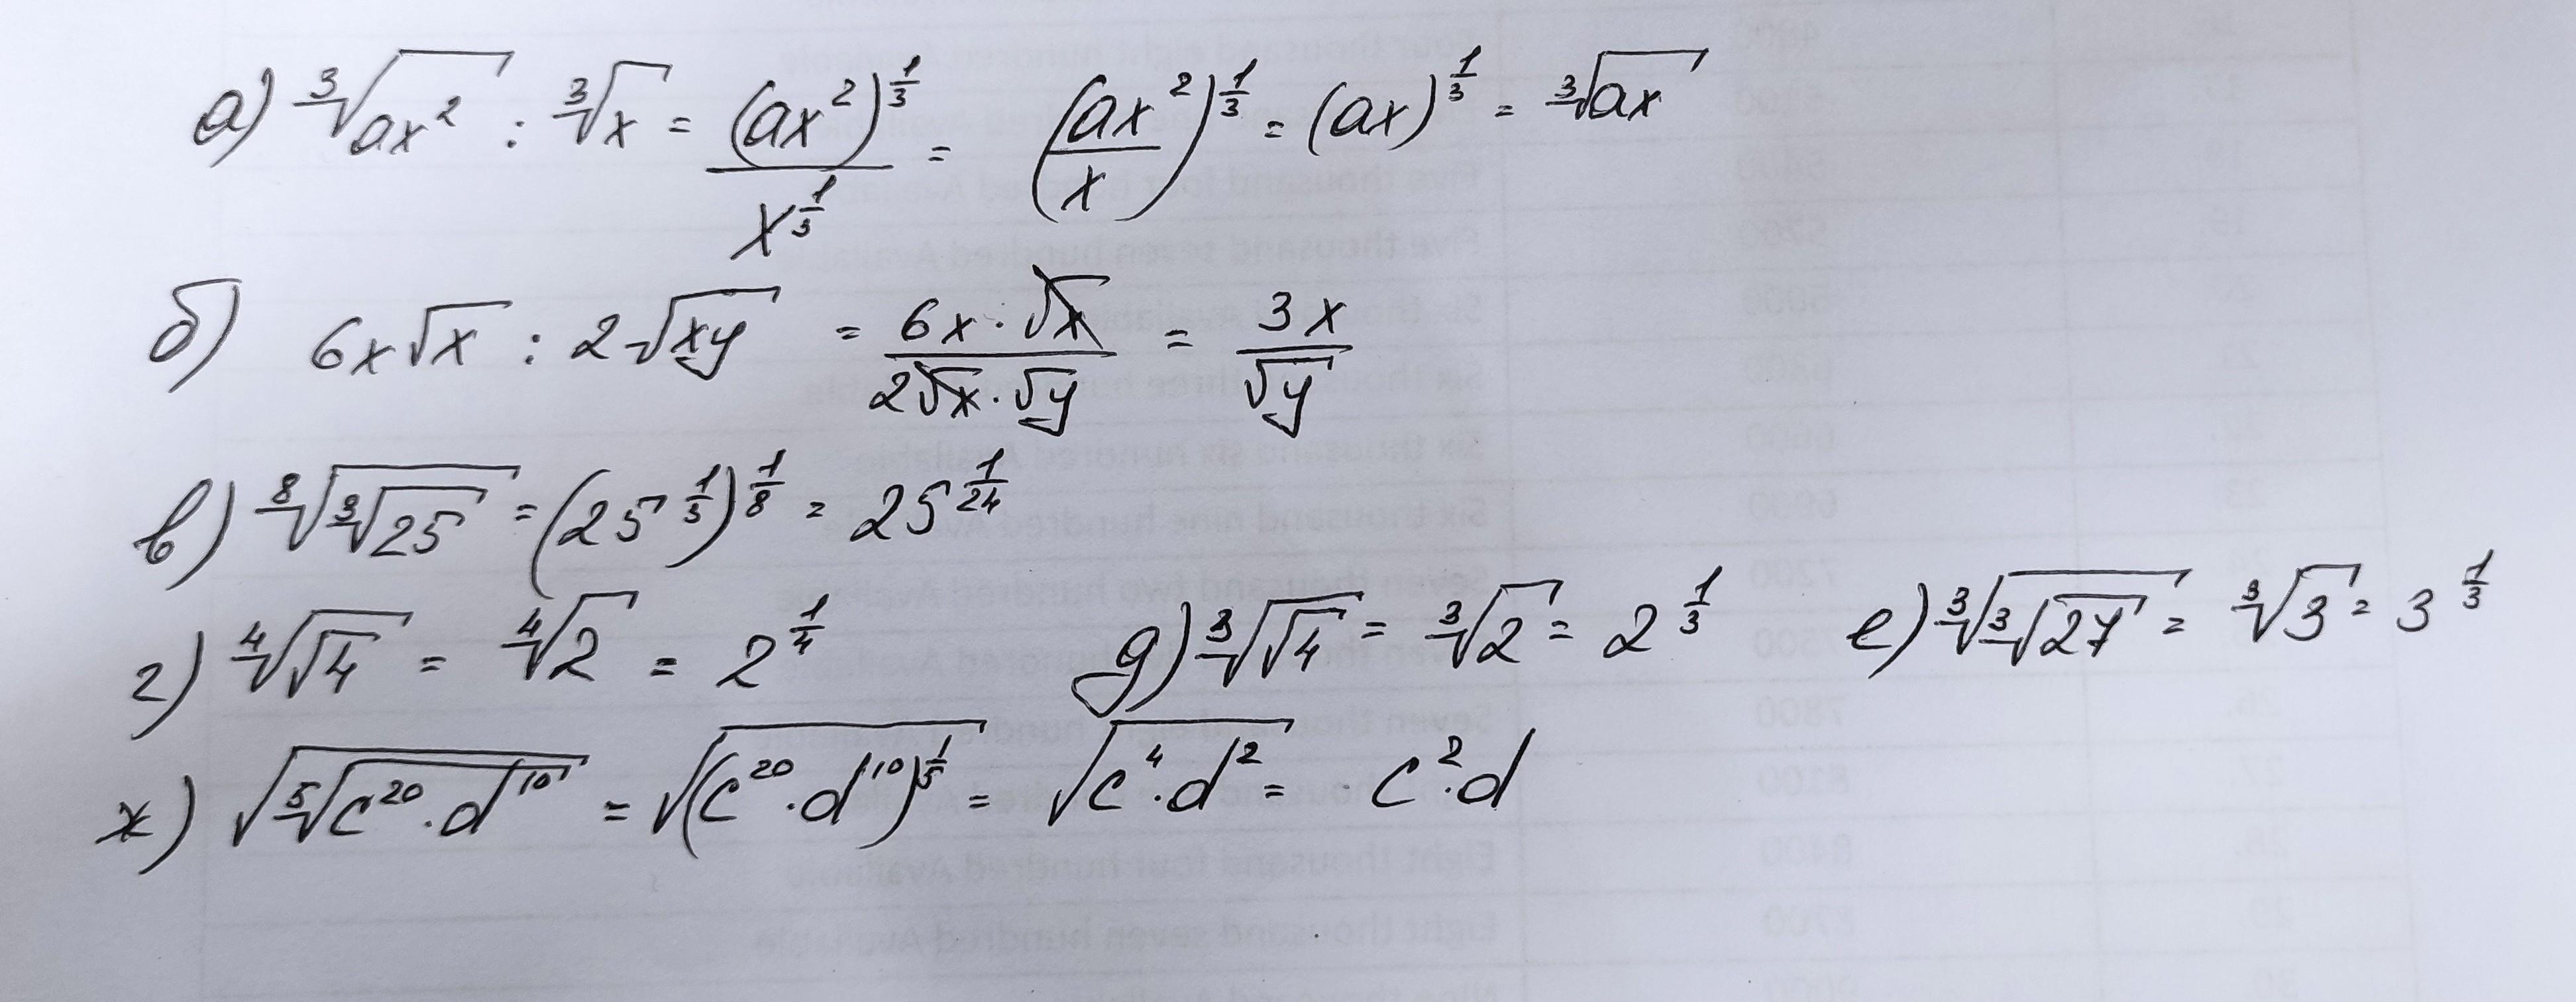 а) ∛(ax²) : ∛x = (ax²)^(1/3) / x^(1/3) = (ax²/x)^(1/3) = (ax)^(1/3) = ∛(ax)
б) 6x√x : 2√(xy) = 6x·√x / 2√x·√y = 3x/√y
в) ⁸√(∛25) = (25^(1/3))^(1/8) = 25^(1/24)
г) ⁴√(√4) = ⁴√2 = 2^(1/4) д) ∛(√4) = ∛2 = 2^(1/3) е) ∛(∛27) = ∛3 = 3^(1/3)
ж) √(⁵√(c²⁰·d¹⁰)) = √((c²⁰·d¹⁰)^(1/5)) = √(c⁴·d²) = c²·d